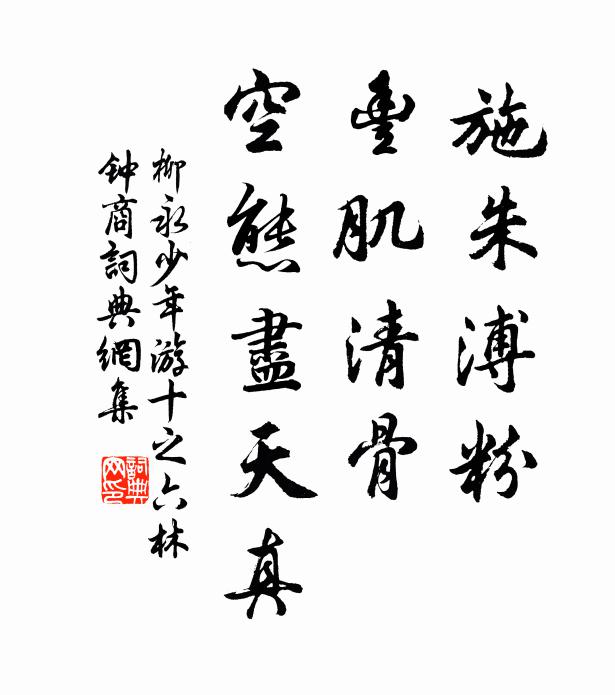 施朱溥粉
豐肌清骨
空態盡天真
柳永少年游十之六林
鈡商詞典網集
詞典
网印